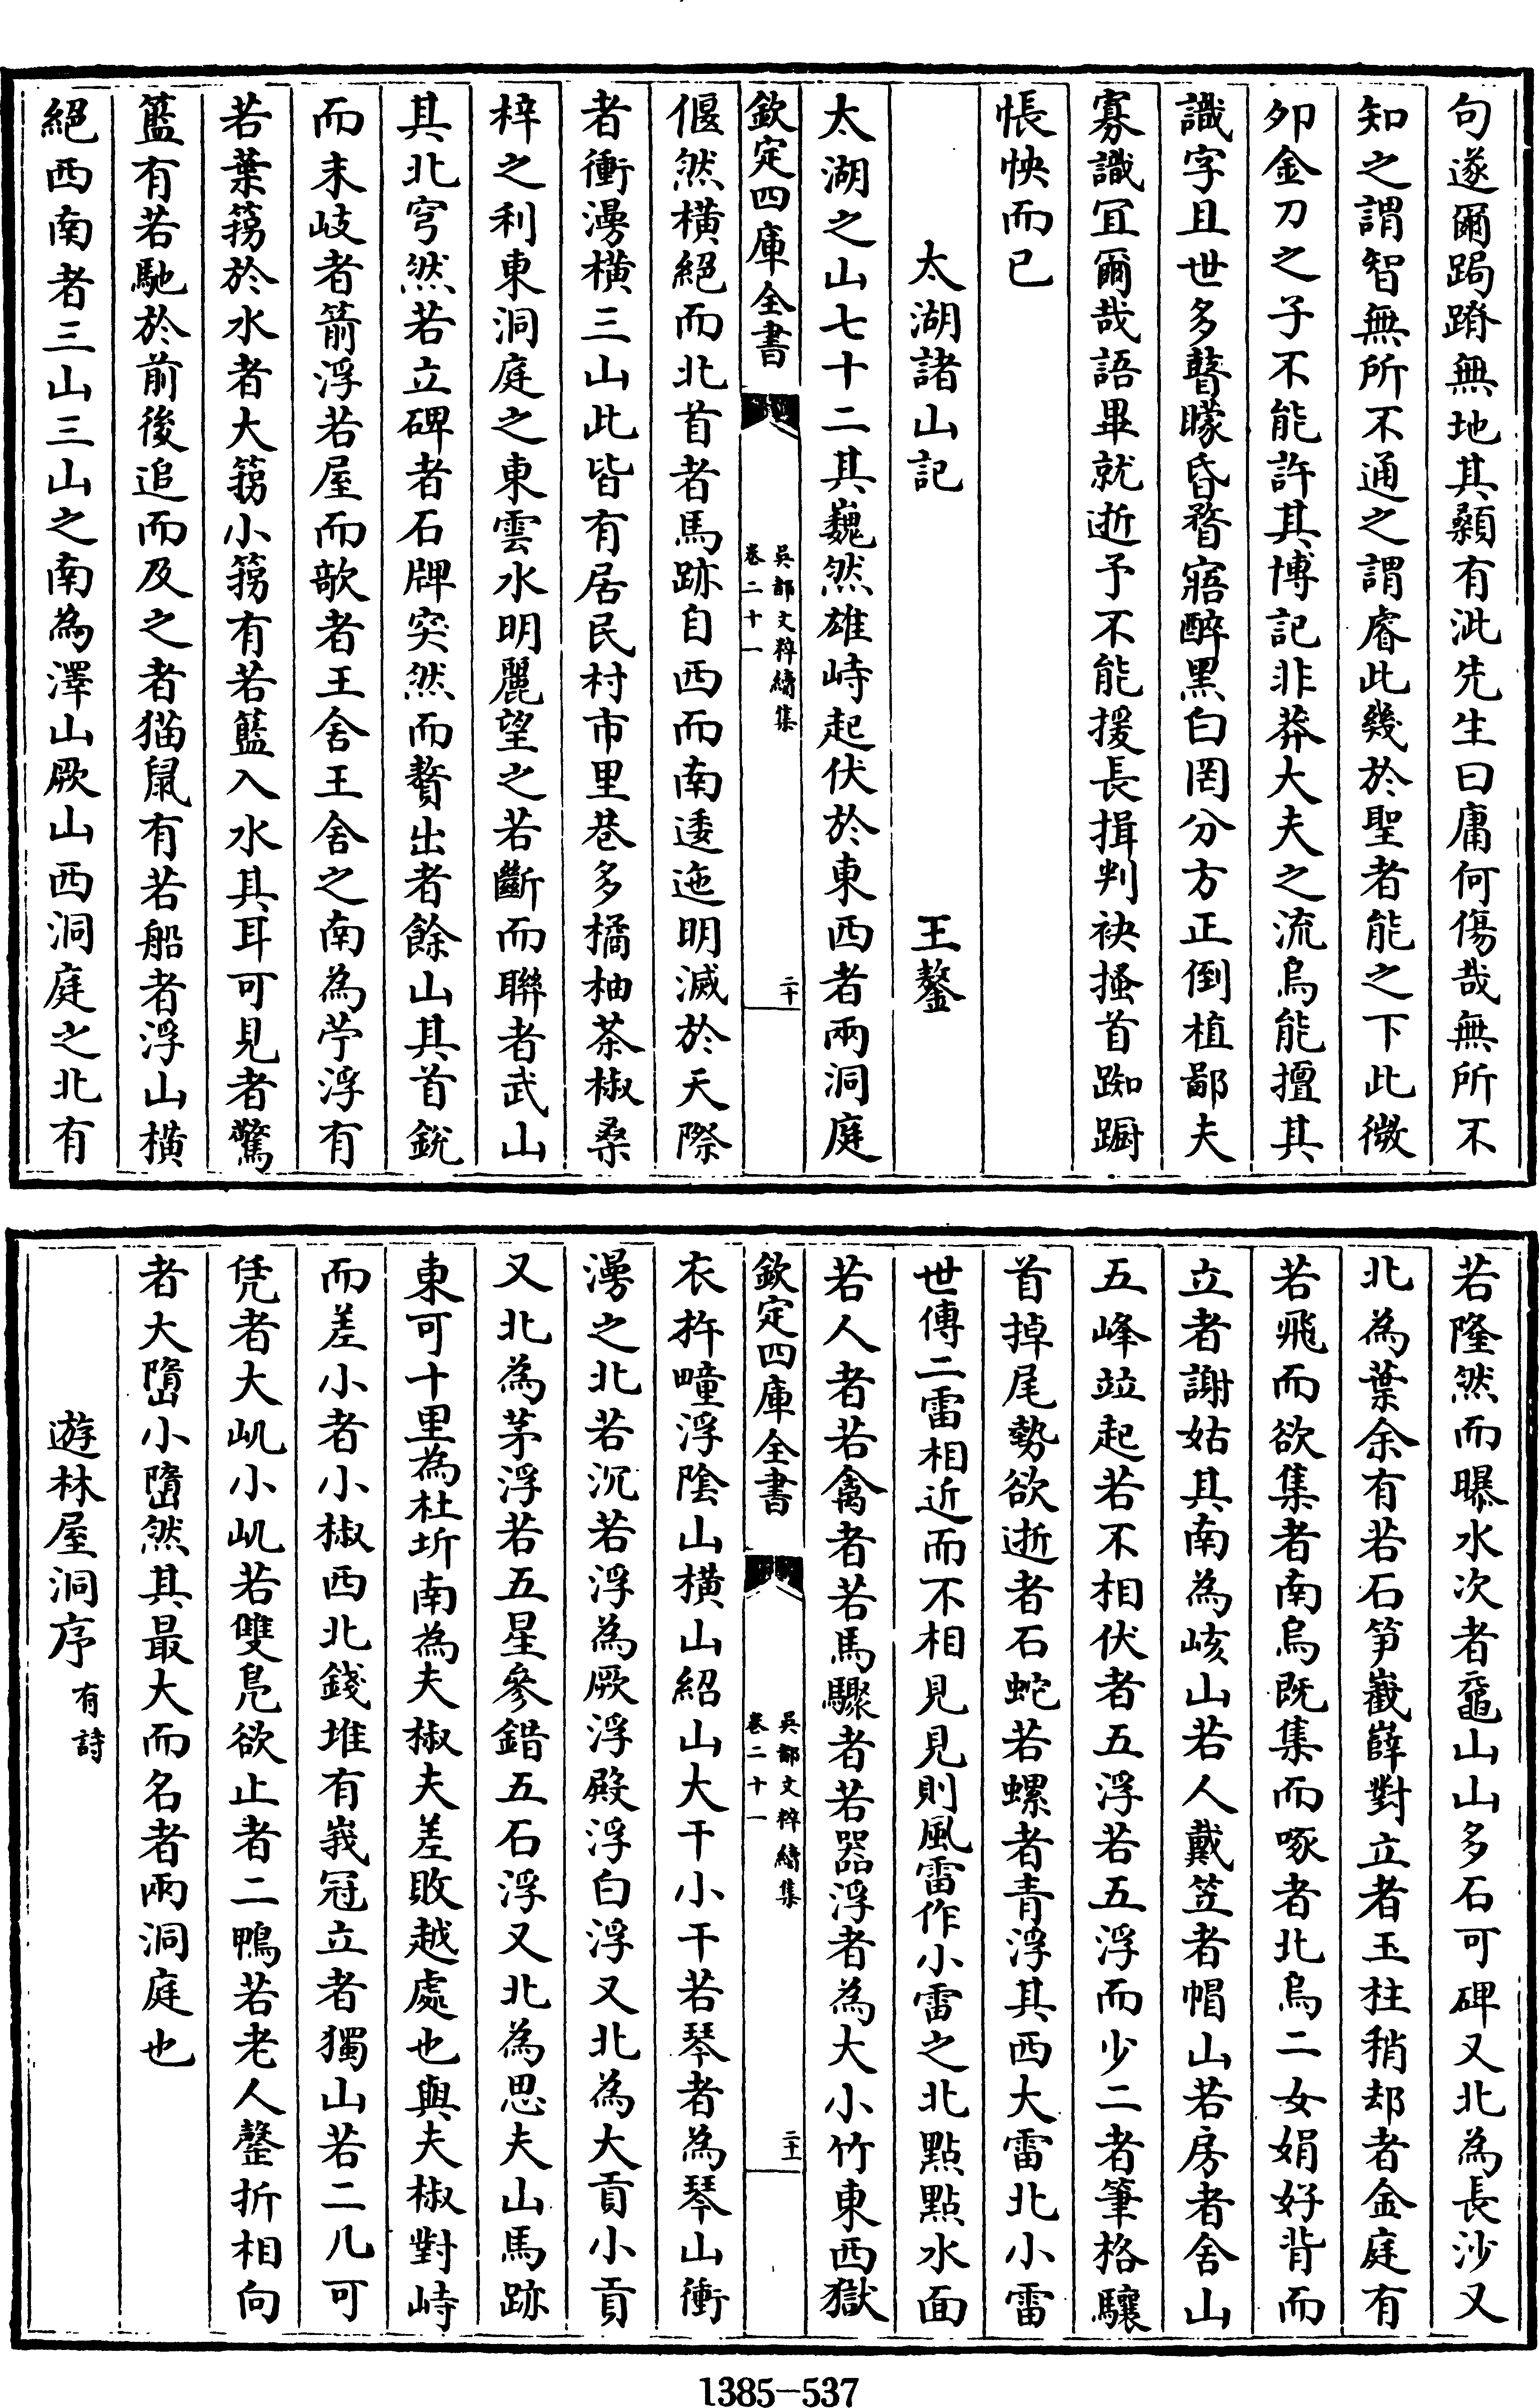 句遂爾跼蹐無地其顙有泚先生曰庸何傷哉無所不
知之謂智無所不通之謂睿此幾於聖者能之下此微
卯金刀之子不能許其博記非莽大夫之流烏能擅其
識字且世多瞽矇昏瞀寤醉黑白罔分方正倒植鄙夫
寡識宜爾哉語畢就逝予不能援長揖判袂搔首踟蹰
悵怏而已
太湖諸山記 王鏊
太湖之山七十二其巍然雄峙起伏於東西者兩洞庭
欽定四庫全書 吳都文粹續集 卷二十一 二十
偃然橫絕而北首者馬跡自西而南逶迤明滅於天際
者衝漫橫三山此皆有居民村市里巷多橘柚茶椒桑
梓之利東洞庭之東雲水明麗望之若斷而聯者武山
其北穹然若立碑者石牌突然而贅出者餘山其首銳
而末岐者箭浮若屋而欹者王舍王舍之南為苧浮有
若葉篛於水者大篛小篛有若籃入水其耳可見者驚
籃有若馳於前後追而及之者猫鼠有若船者浮山橫
絕西南者三山三山之南為澤山厥山西洞庭之北有
若隆然而曝水次者黿山山多石可碑又北為長沙又
北為葉余有若石笋巀嶭對立者玉柱稍却者金庭有
若飛而欲集者南烏既集而啄者北烏二女娟好背而
立者謝姑其南為峐山若人戴笠者帽山若房者舍山
五峰竝起若不相伏者五浮若五浮而少二者筆格驤
首掉尾勢欲逝者石蛇若螺者青浮其西大雷北小雷
世傳二雷相近而不相見見則風雷作小雷之北點點水面
若人者若禽者若馬驟者若器浮者為大小竹東西獄
欽定四庫全書 吳都文粹續集 卷二十一 二十一
衣杵疃浮陰山橫山紹山大干小干若琴者為琴山衝
漫之北若沉若浮為厥浮殿浮白浮又北為大貢小貢
又北為茅浮若五星參錯五石浮又北為思夫山馬跡
東可十里為杜圻南為夫椒夫差敗越處也與夫椒對峙
而差小者小椒西北錢堆有峩冠立者獨山若二几可
凭者大𡵆小𡵆若雙鳧欲止者二鴨若老人罄折相向
者大墮小墮然其最大而名者兩洞庭也
遊林屋洞序 有詩
1385-537